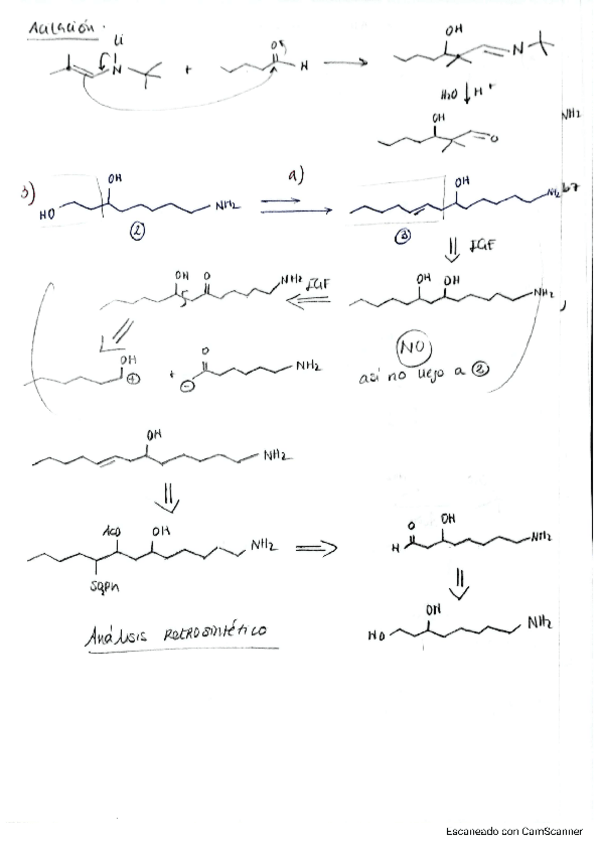 Acilación.
Li
N + O H → OH N
H2O ↓ H+
OH O
NH2
3) HO OH NH2 a) OH NH2
② ③
⇓ IGF
OH O NH2 IGF OH OH NH2
OH ⊕ + ⊖ O NH2
NO
así no llego a ②
OH NH2
AcO OH NH2 O H OH NH2
SO2Ph
Análisis retrosintético
HO OH NH2
Escaneado con CamScanner